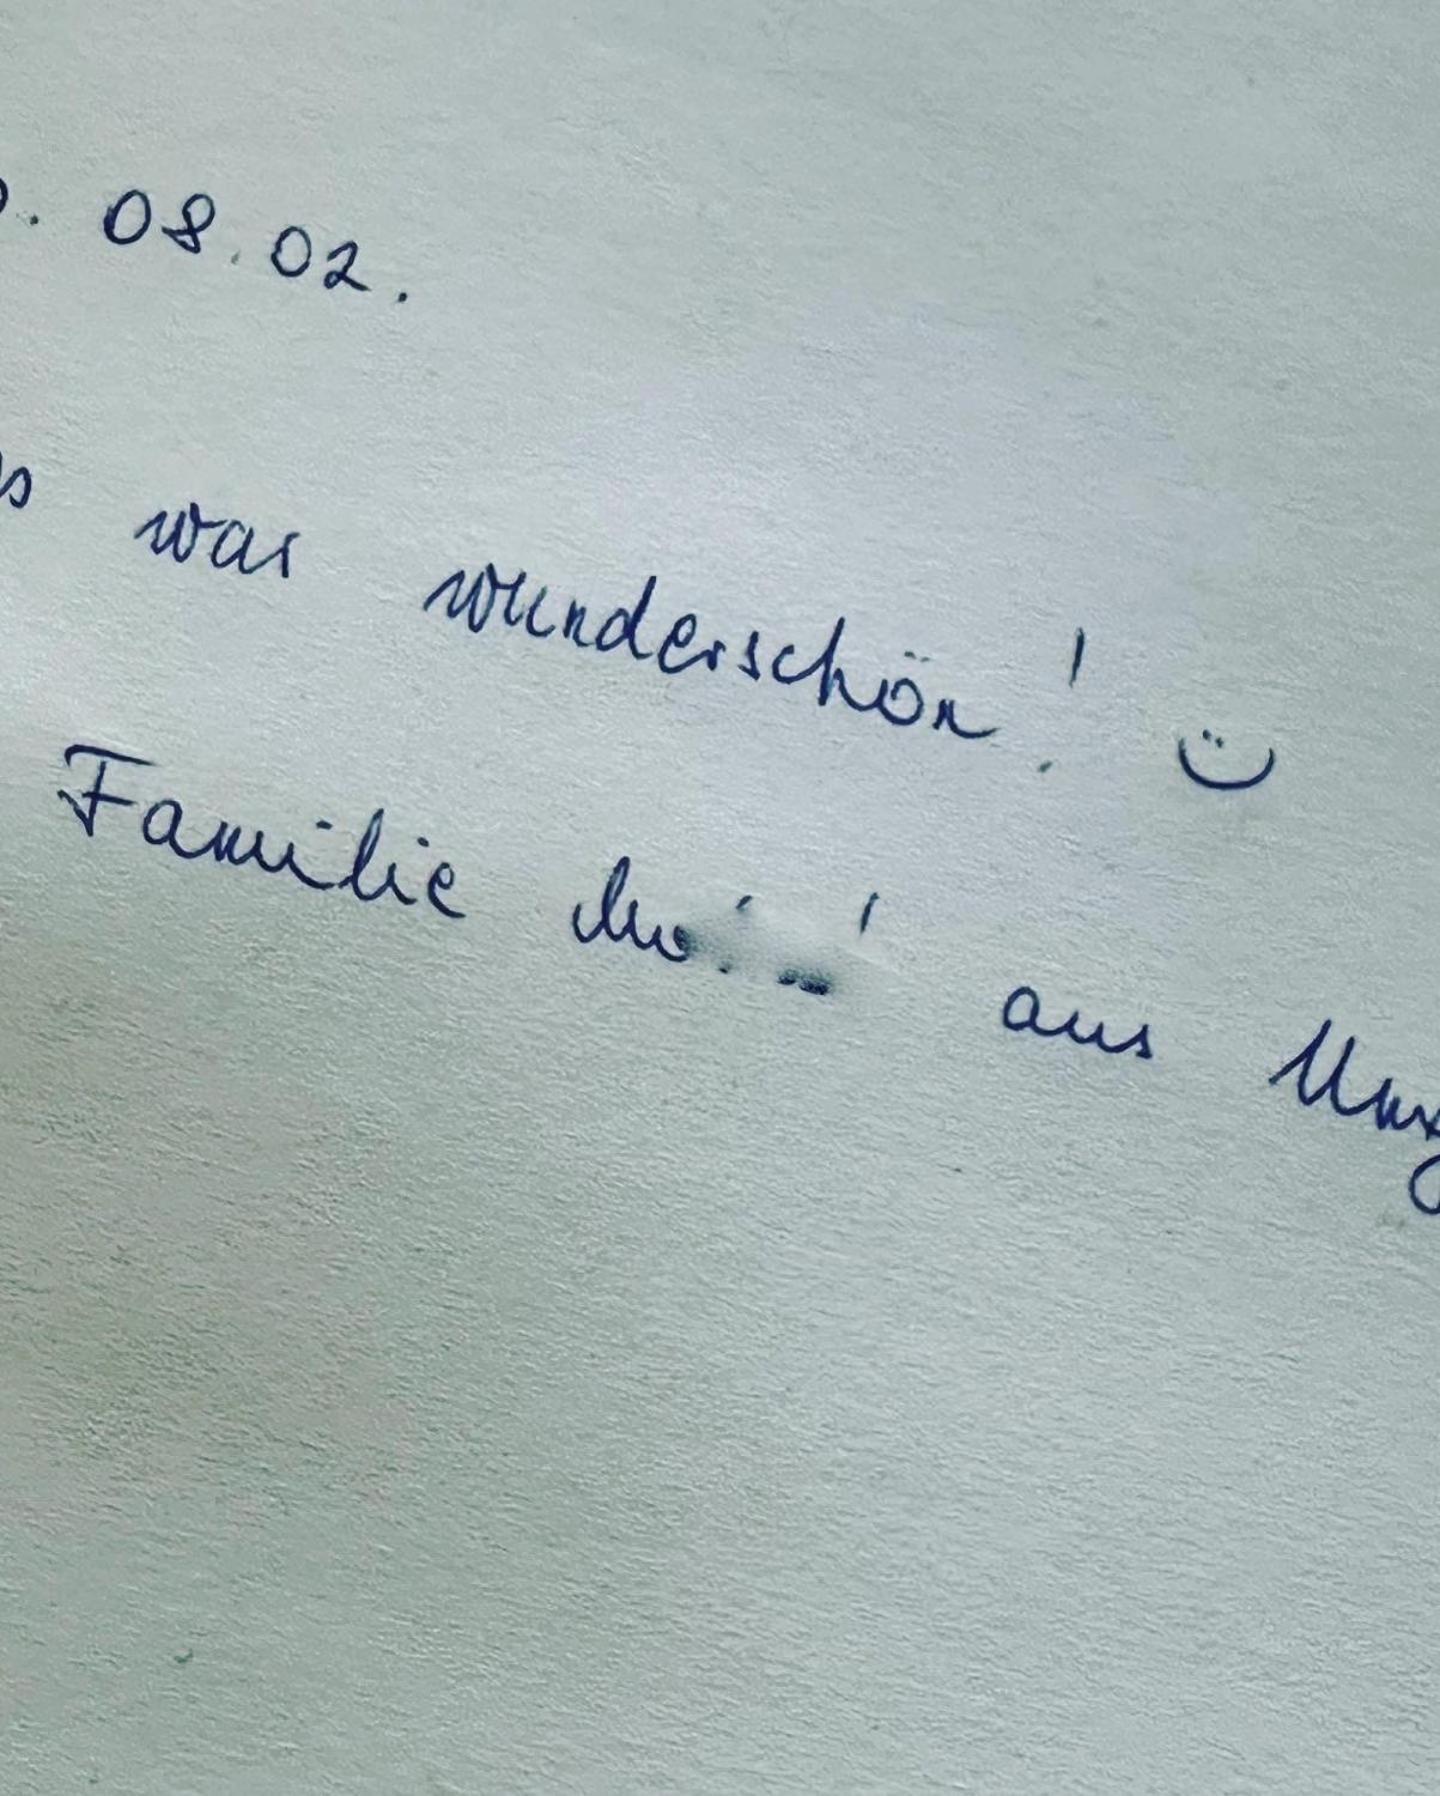 08.02.
war wunderschön! :)
Familie aus